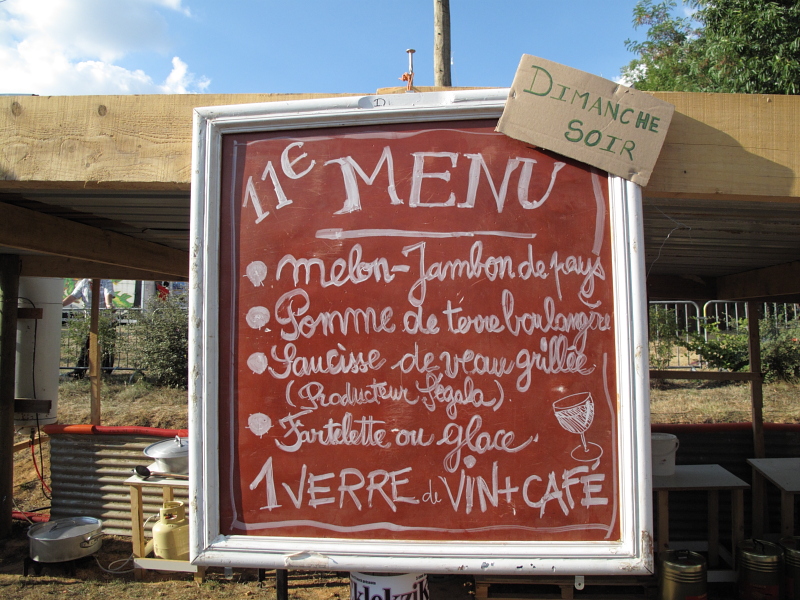 DIMANCHE
SOIR
11€ MENU
melon-Jambon de pays
Pomme de terre boulangère
Saucisse de veau grillée
(Producteur Ségala)
Tartelette ou glace.
1 VERRE de VIN + CAFÉ